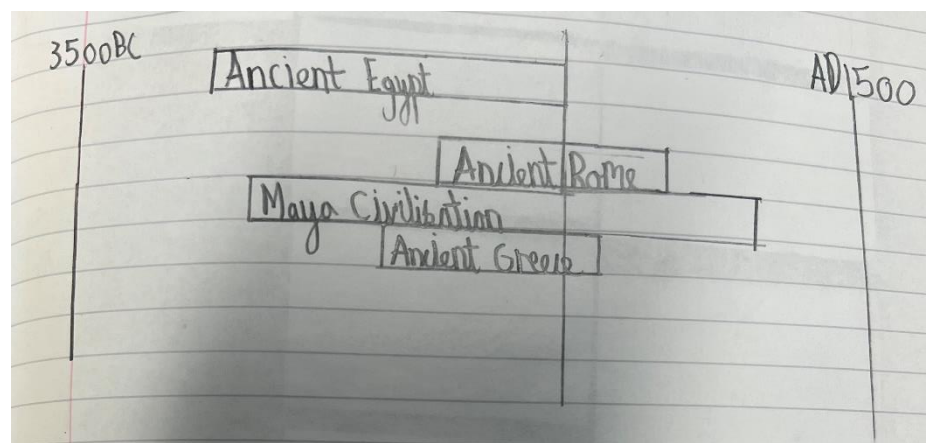 3500BC
AD1500
Ancient Egypt
Ancient Rome
Maya Civilisation
Ancient Greece